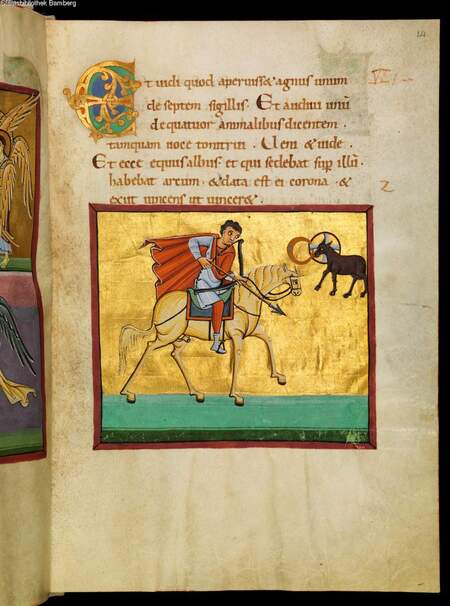 Staatsbibliothek Bamberg
14
Et uidi quod aperuiss& agnus unum
de septem sigillis. Et audiui unū
de quatuor animalibus dicentem.
tamquam uoce tonitrui. Ueni & uide.
Et ecce equus albus. et qui sedebat sup illū.
habebat arcum. & data est ei corona. &
exiit uincens ut uincer&.